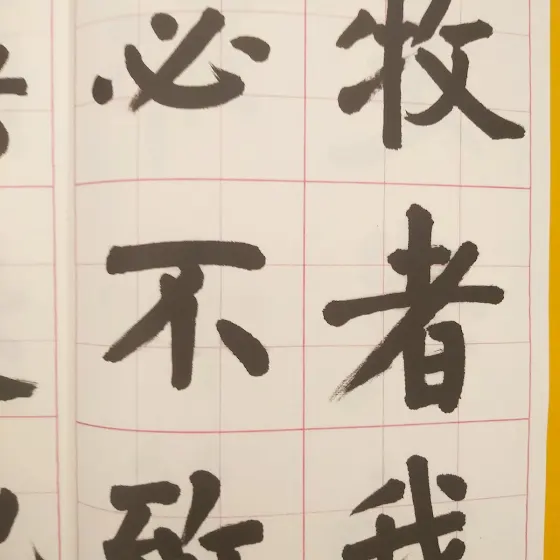 牧者我
必不致